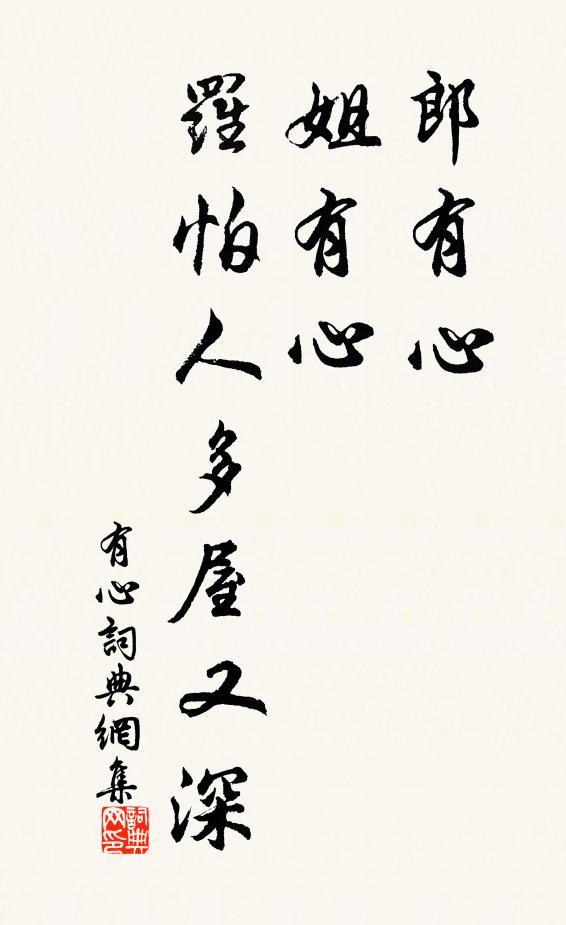 郎有心
姐有心
羅怕人多屋又深
有心詞典網集
詞典網印